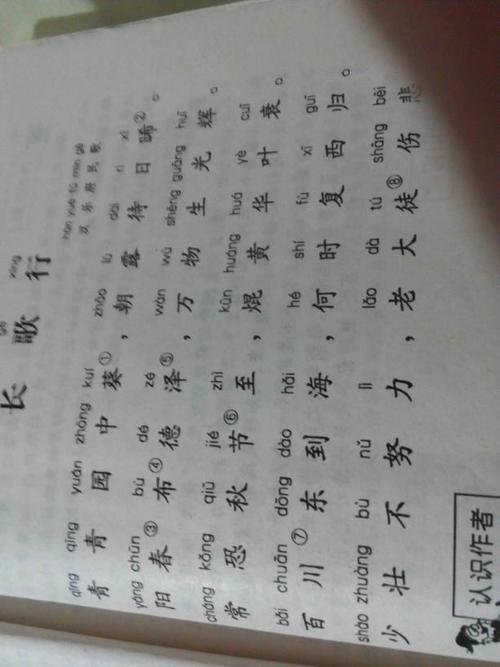 gē xíng
长歌行
hàn yuè fǔ mín gē
汉乐府民歌
qīng qīng yuán zhōng kuí zhāo lù dài rì xī
青青园中葵①，朝露待日晞②。
yáng chūn bù dé zé wàn wù shēng guāng huī
阳春③布④德泽⑤，万物生光辉。
cháng kǒng qiū jié zhì kūn huáng huá yè cuī
常恐秋节⑥至，焜黄华叶衰。
bǎi chuān dōng dào hǎi hé shí fù xī guī
百川⑦东到海，何时复西归。
shào zhuàng bù nǔ lì lǎo dà tú shāng bēi
少壮不努力，老大徒⑧伤悲。
认识作者